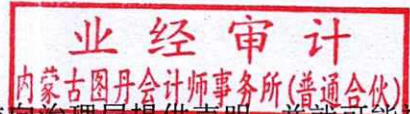 业经审计
内蒙古图丹会计师事务所(普通合伙)
治理层提供声明，并就可能